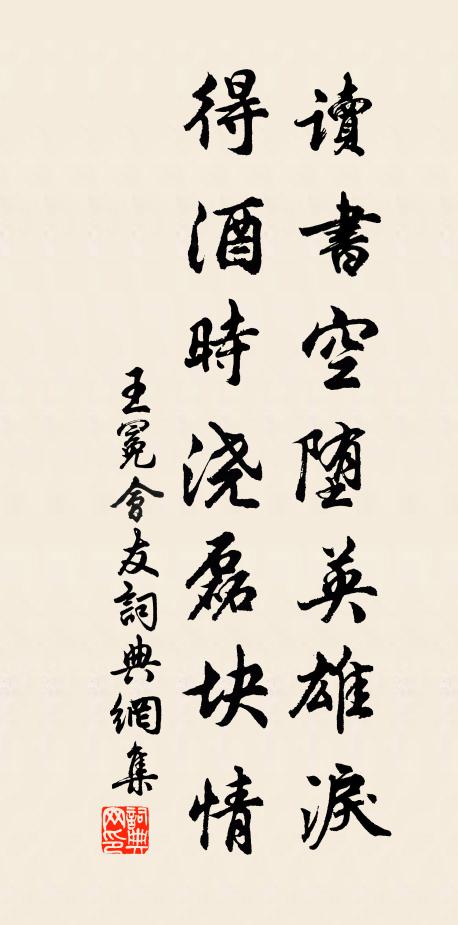 讀書空堕英雄淚
得酒時浇磊块情
王冕會友詞典網集
詞典
网印